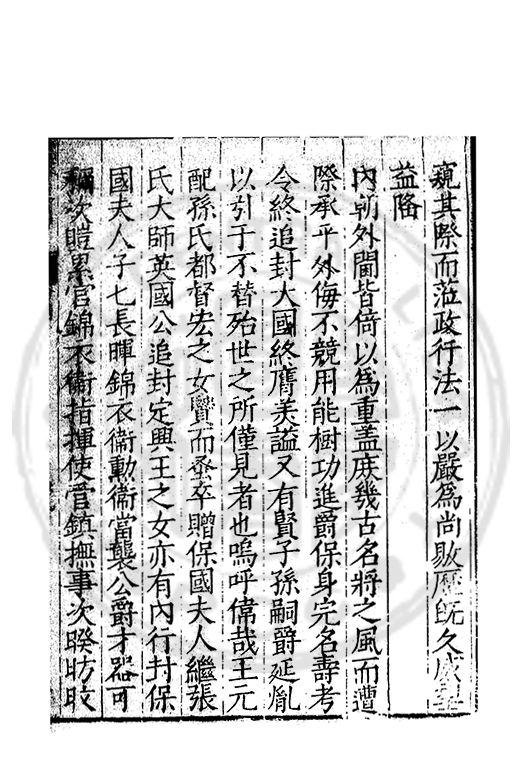 窺其際而蒞政行法一以嚴為尚敭歷既久威望
益隆
內朝外閫皆倚以為重蓋庶幾古名將之風而遭
際承平外侮不競用能樹功進爵保身完名壽考
令終追封大國終膺美謚又有賢子孫嗣爵延胤
以引于不替殆世之所僅見者也嗚呼偉哉王元
配孫氏都督宏之女賢而蚤卒贈保國夫人繼張
氏大師英國公追封定興王之女亦有內行封保
國夫人子七長暉錦衣衞勳衞當襲公爵才器可
稱次暟累官錦衣衞指揮使管鎮撫事次暌昉旼